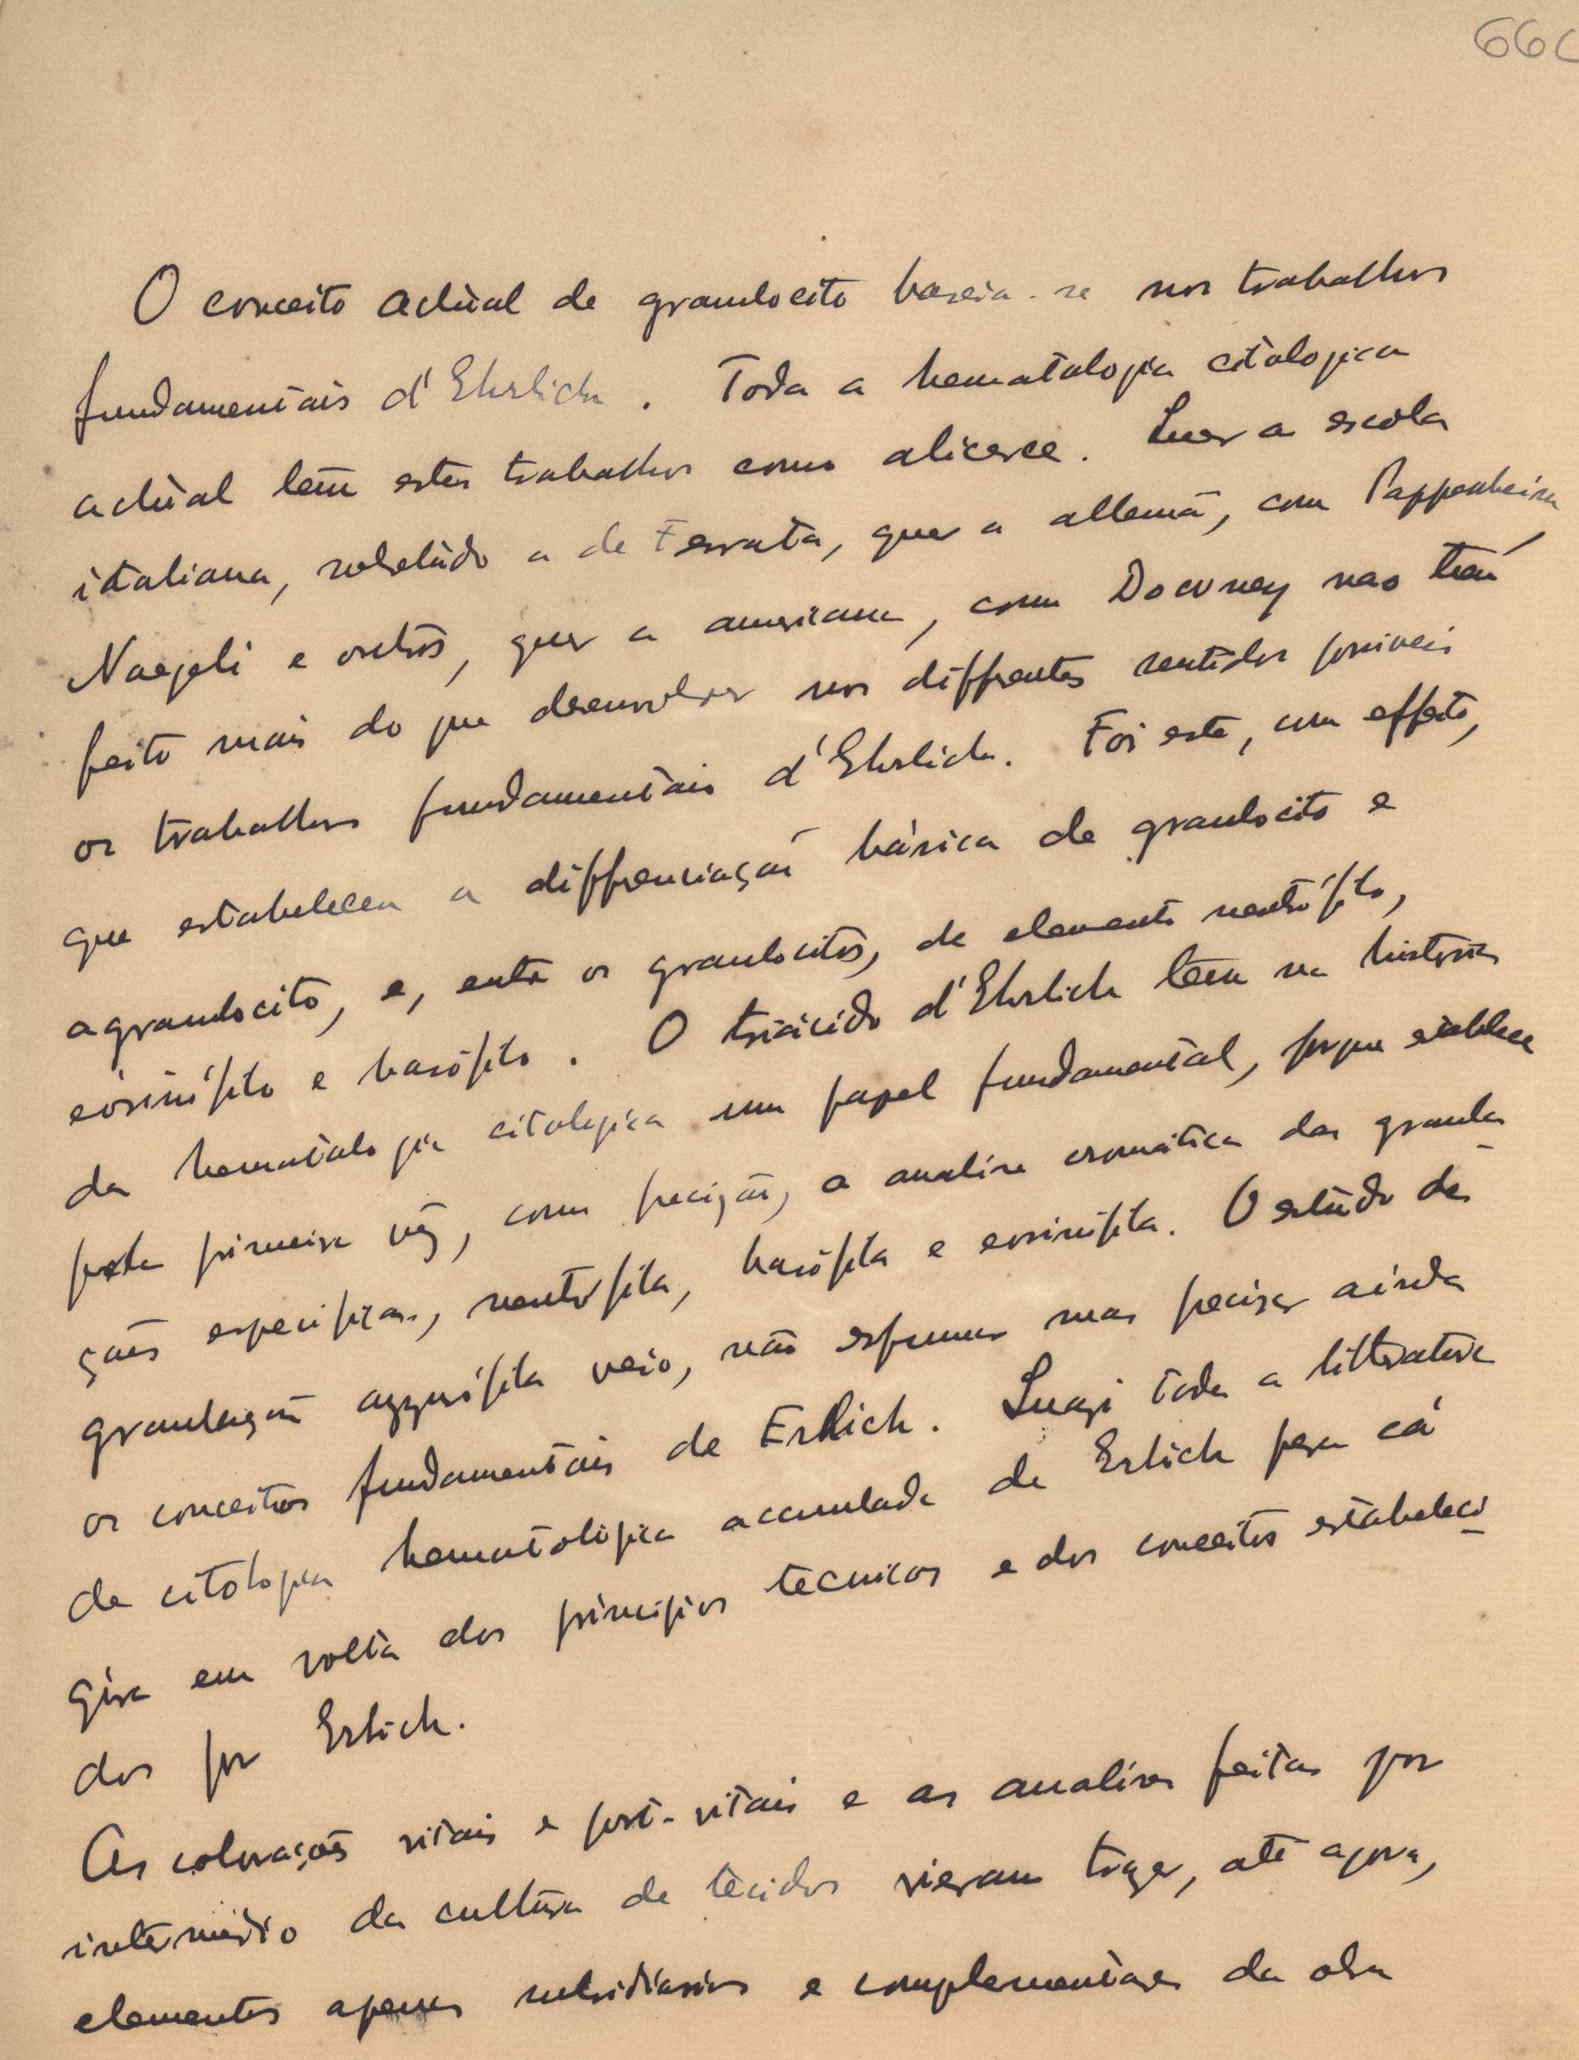 66C
O conceito actual de granulocito baseia-se nos trabalhos
fundamentais d'Ehrlich. Toda a hematologia citologica
actual tem estes trabalhos como alicerce. Quer a escola
italiana, sobretudo a de Ferrata, quer a allemã, com Pappenheim,
Naegeli e outros, quer a americana, com Downey não tem
feito mais do que desenvolver nos diffrentes sentidos possiveis
os trabalhos fundamentais d'Ehrlich. Foi este, com effeito,
que estabeleceu a diffrenciação básica de granulocito e
agranulocito, e, entre os granulocitos, de elemento neutrófilo,
eosinófilo e basófilo. O triácido d'Ehrlich tem na historia
da hematologia citologica um papel fundamental, porque establece
pela primeira vêz, com precizão, a analise cromática das granula-
ções especificas, neutrófila, basófila e eosinófila. O estudo da
granulação azzurófila veio, não esfumar mas precizar ainda
os conceitos fundamentais de Erlich. Quazi toda a litteratura
de citologia hematológica accumulada de Erlich para cá
gira em volta dos principios tecnicos e dos conceitos estabeleci-
dos por Erlich.
As colorações vitais e post-vitais e as analises feitas por
intermédio da cultura de tecidos vieram trazer, até agora,
elementos apenas subsidiarios e complementares da obra